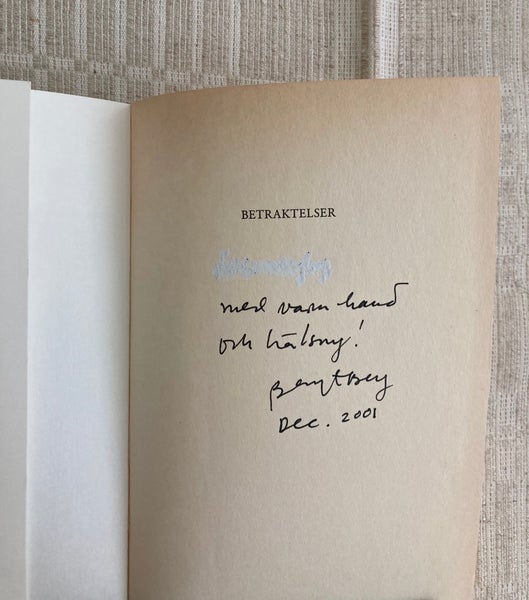 BETRAKTELSER
med varm hand
och hälsning!
Bengt Berg
Dec. 2001